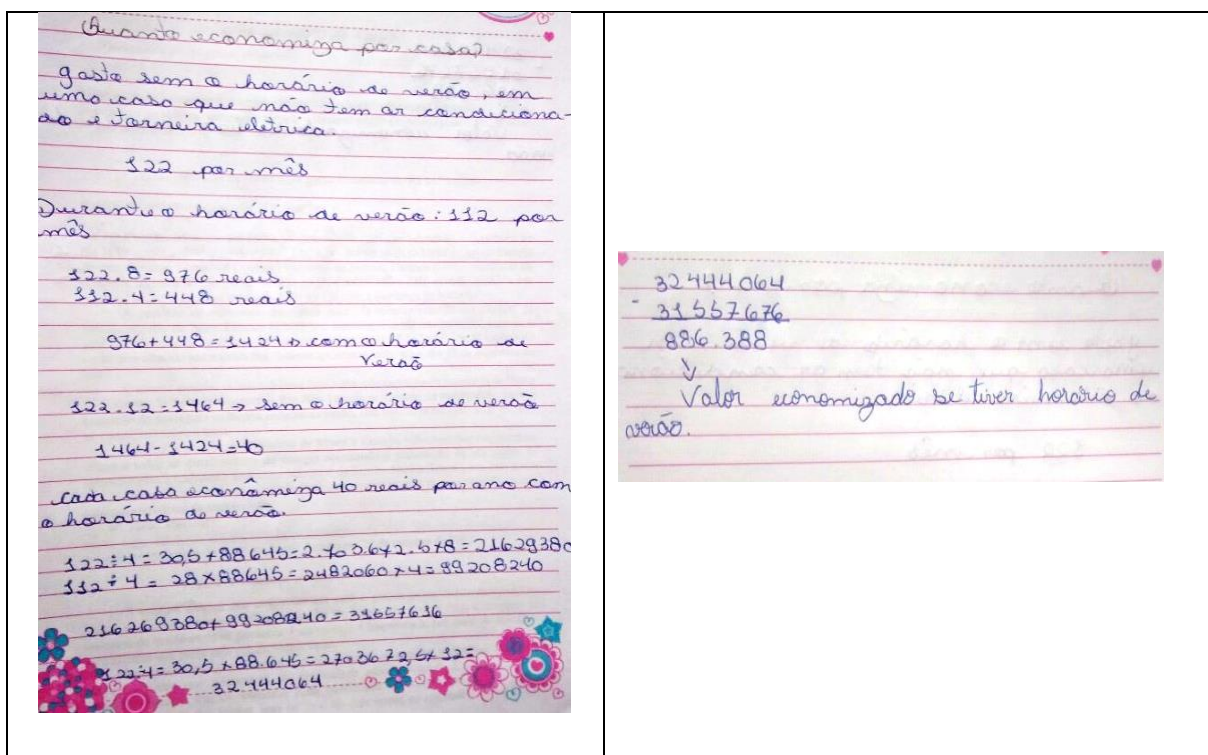 Quanto economiza por casa?
gasto sem o horário de verão, em
uma casa que não tem ar condiciona-
do e torneira eletrica.
122 por mês
Durante o horário de verão: 112 por
mês
122.8=976 reais
112.4=448 reais
976+448=1424→ com o horário de
verão
122.12=1464→ sem o horário de verão
1464-1424=40
cada casa econômiza 40 reais por ano com
o horário de verão.
122÷4=30,5×88645=2.703672.5×8=21629380
112÷4= 28×88645=2482060×4=99208240
+99208240=
122÷4=30,5×88.645=2703672,5×12=
32444064
32444064
- 31557676
886.388
↓
Valor economizado se tiver horário de
verão.